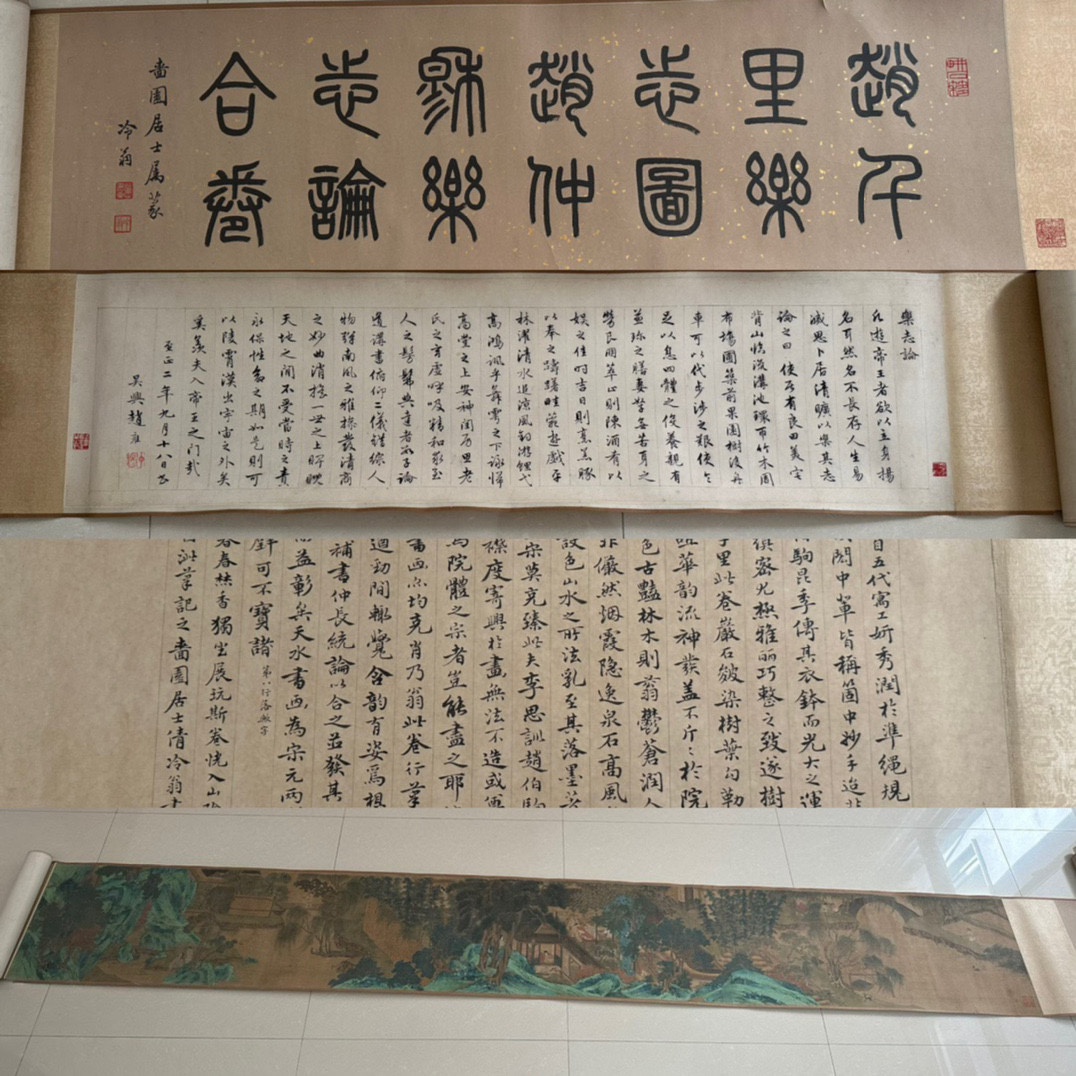 趙千
里樂
志圖
趙仲
穆樂
志論
合卷
嗇園居士屬篆
冷翁
樂志論
凡遊帝王者欲以立身揚
名耳然名不長存人生易
滅思卜居清曠以樂其志
論之曰使居有良田美宅
背山臨流溝池環帀竹木周
布場圃築前果園樹後舟
車可以代步涉之艱使令
足以息四體之役養親有
兼珍之膳妻孥無苦身之
勞良朋萃止則陳酒肴以
娛之佳時吉日則烹羔豚
以奉之躊躇畦苑遊戲平
林濯清水追涼風釣游鯉弋
高鴻諷乎舞雩之下詠歸
高堂之上安神閨房思老
氏之玄虛呼吸精和求至
人之髣髴與達者數子論
道講書俯仰二儀錯綜人
物彈南風之雅操發清商
之妙曲逍遙一世之上睥睨
天地之間不受當時之責
永保性命之期如是則可
以陵霄漢出宇宙之外矣
奚羨夫入帝王之門哉
至正二年九月十八日書
吳興趙雍
自五代寫工妍秀潤於準繩規
閎中單皆稱箇中妙手迨北
駒昆季傳其衣鉢而光大之運
緻密尤極雅麗巧整之致遂樹
千里此卷巖石皴染樹葉勾勒
華韻流神裴蓋不斤斤於院
色古豔林木則蓊鬱蒼潤人
非儼然烟霞隐逸泉石高風
設色山水之所法乳至其落墨
宋莫克臻此夫李思訓趙伯駒
襟度寄興於畫無法不造或
為院體之宗者豈能盡之耶
書画亦均克肖乃翁此卷行筆
遒勁間輒覺含韻有姿焉根
補書仲長統論以合之茁發其
益彰矣天水書画為宋元两
可不寶諸 第八行落
春春林香獨坐展玩斯卷恍入山
此筆記之嗇園居士倩冷翁書